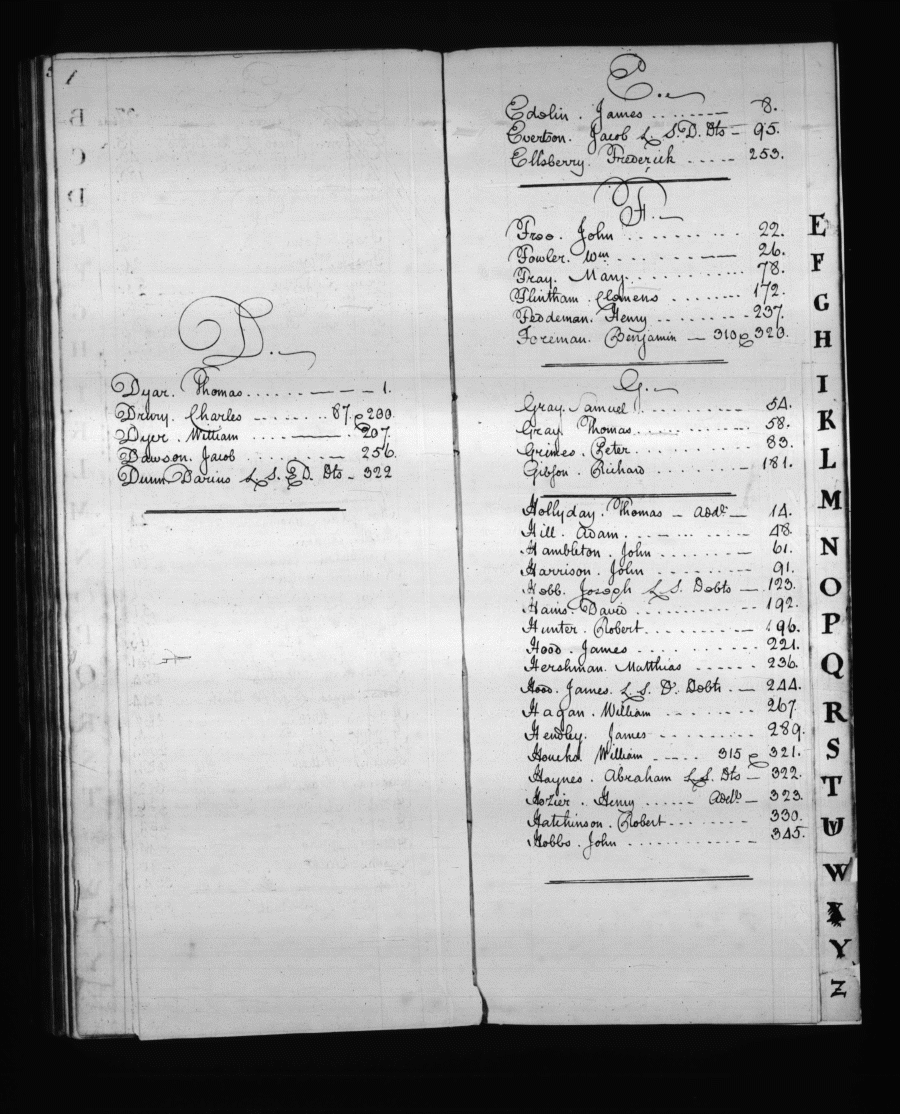 D.
Dyar. Thomas 1.
Drury. Charles 87. & 200.
Dyer. William 207.
Dawson. Jacob 256.
Dunn Darius L. S. & D. Dts 322
E.
Edolin. James 8.
Everton. Jacob L. S. D. Dts 95.
Ellsberry. Frederick 253.
F.
Free. John 22.
Fowler. Wm 26.
Fray. Mary 78.
Flintham. Clemens 172.
Henry 237.
Foreman. Benjamin 310 & 320.
G.
Gray. Samuel 54.
Gray. Thomas 58.
Grimes. Peter 83.
Gibson. Richard 181.
Hollyday. Thomas 14.
Hill. Adam 48.
Hambleton. John 61.
Harrison. John 91.
Hobb. Joseph L. S. Debts 123.
Hains. David 192.
Hunter. Robert 196.
Hood. James 221.
Hershman. Matthias 236.
Hood. James. L. S. D. Debts 244.
Hagan. William 267.
Hendley. James 289.
William 315 & 321.
Haynes. Abraham L.S. Dts 322.
Hozier. Henry 323.
Hatchinson. Robert 330.
Hobbs. John 345.
E
F
G
H
I
K
L
M
N
O
P
Q
R
S
T
W
X
Y
Z